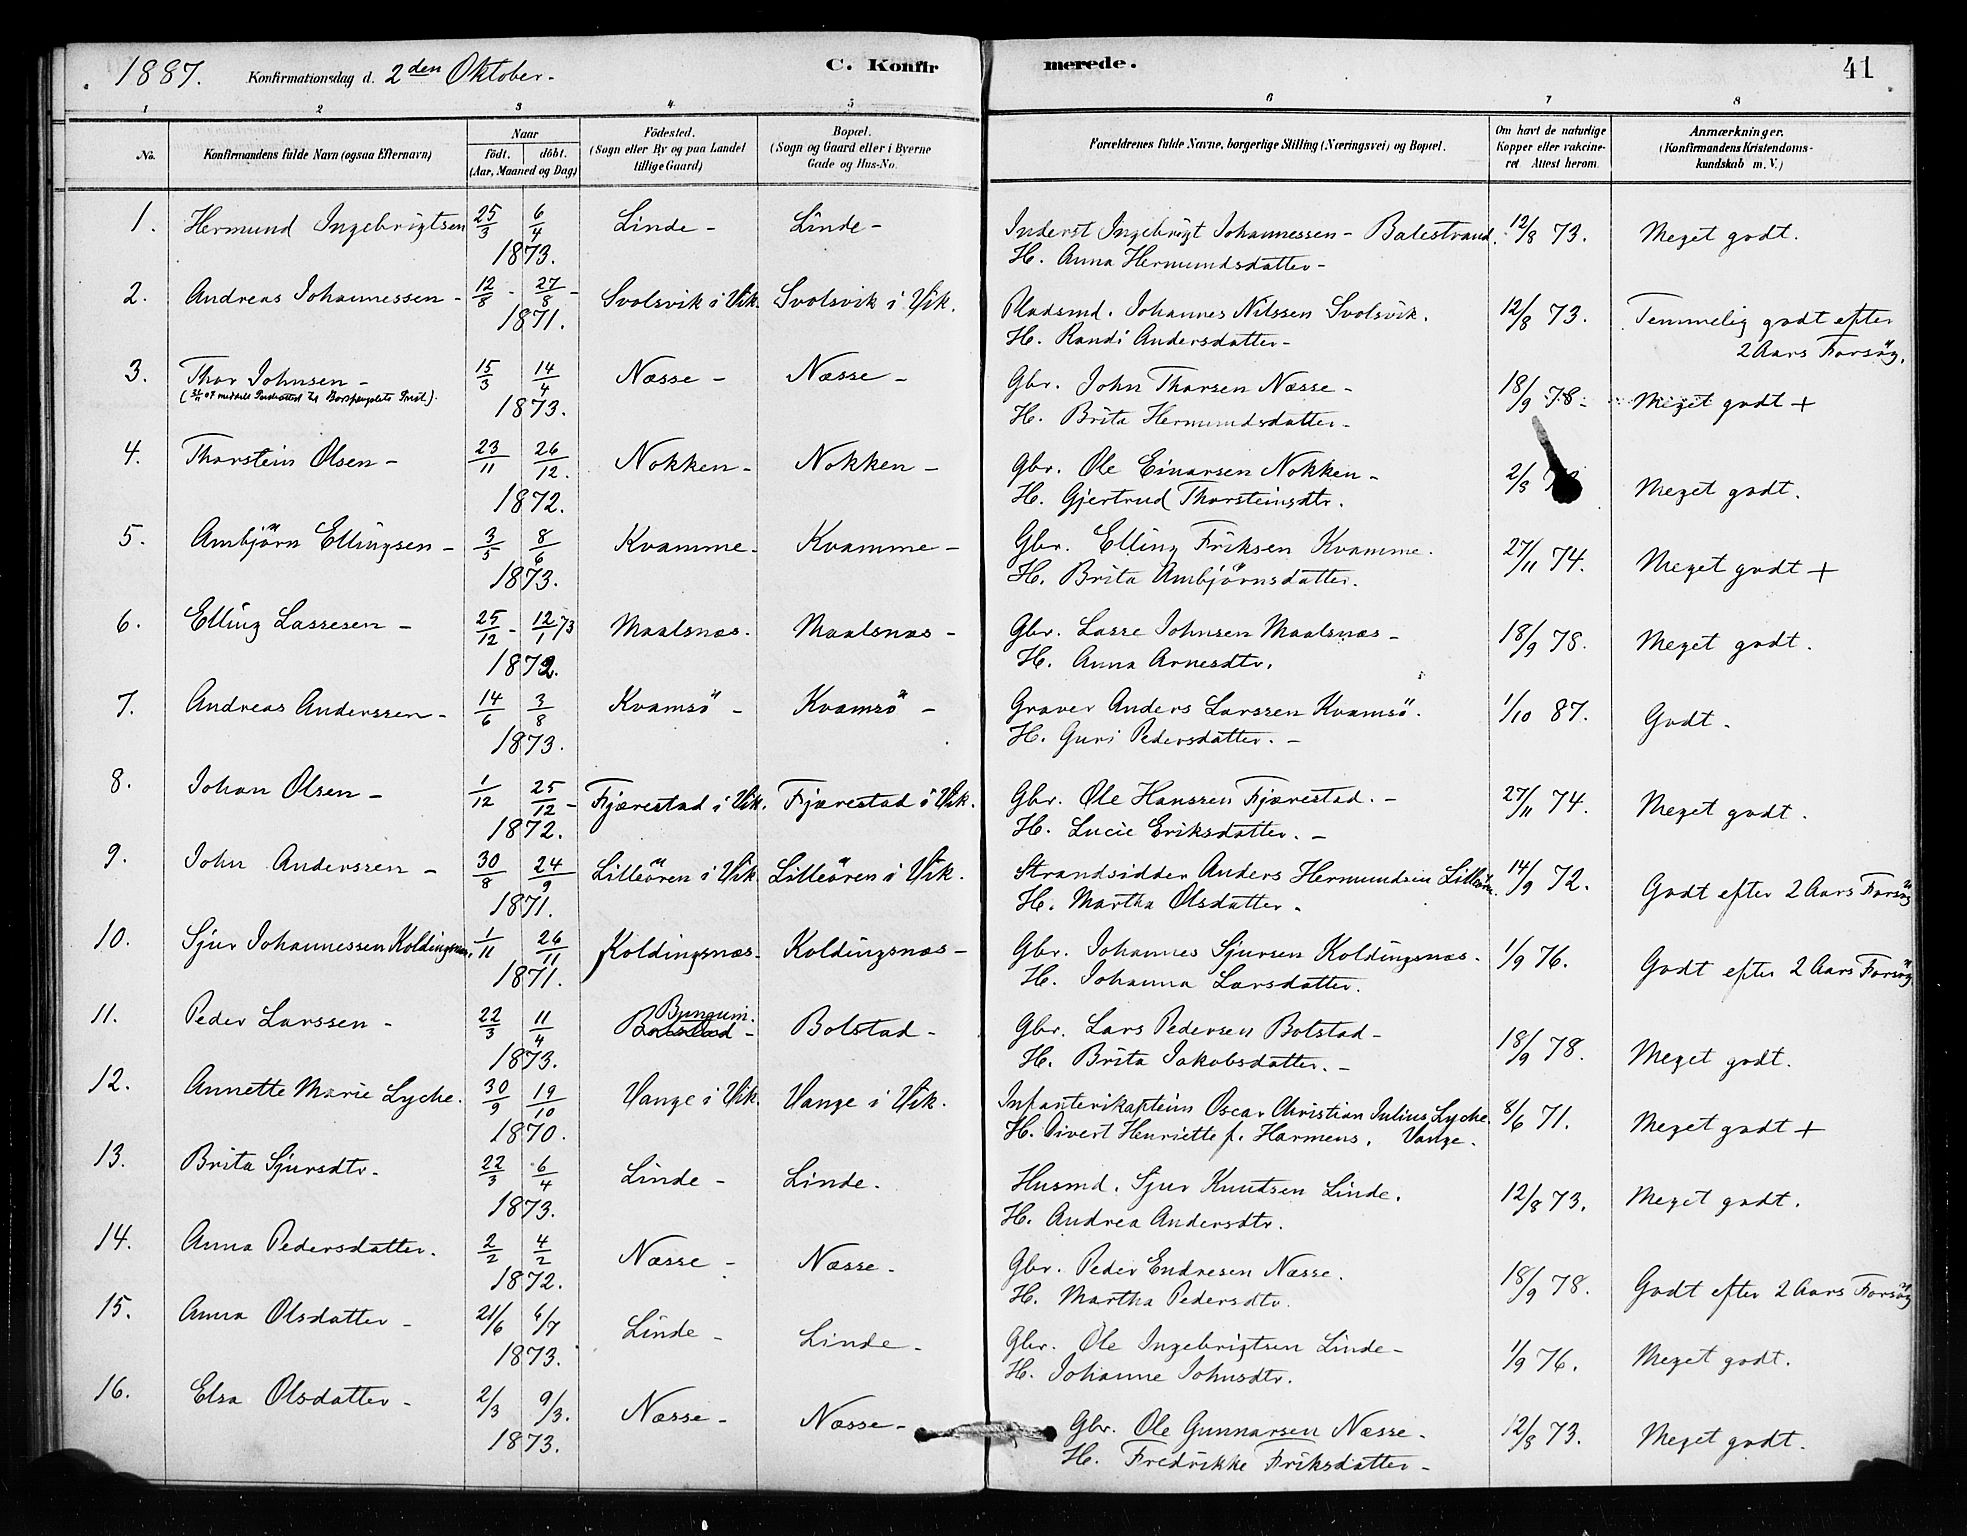 1887. Konfirmationsdag d. 2den Oktober. C. Konfirmerede. 41
1 2 3 4 5 6 7 8
No. Konfirmandens fulde Navn (ogsaa Efternavn) Naar födt. döbt. (Aar, Maaned og Dag) Födested. (Sogn eller By og paa Landet tillige Gaard) Bopæl. (Sogn og Gaard eller i Byerne Gade og Hus-No. Forældrenes fulde Navne, borgerlige Stilling (Næringsvei) og Bopæl. Om havt de naturlige Kopper eller vakcineret Attest herom. Anmærkninger. (Konfirmandens Kristendomskundskab m. V.)
1. Hermund Ingebrigtsen 25/3 6/4 Linde - Linde - Inderst Ingebrigt Johannessen - Balestrand. 12/8 73. Meget godt.
1873. H. Anna Hermundsdatter -
2. Andreas Johannessen - 12/8 - 27/8 - Svolsvik i Vik. Svolsvik i Vik. Pladsmd. Johannes Nilssen Svolsvik. 12/8 73. Temmelig godt efter
1871. H. Randi Andersdatter - 2 Aars Forsög.
3. Thor Johnsen - 15/3 14/4 Næsse - Næsse - Gbr. John Thorsen Næsse - 18/9 78 - Meget godt +
1873. H. Brita Hermundsdatter -
4. Thorstein Olsen - 23/11 26/12. Nokken - Nokken - Gbr. Ole Einarsen Nokken - 2/8 Meget godt.
1872. H. Gjertrud Thorsteinsdtr.
5. Ambjörn Ellingsen - 3/5 8/6 Kvamme - Kvamme - Gbr. Elling Eriksen Kvamme. 27/11 74. Meget godt +
1873. H. Brita Ambjörnsdatter.
6. Elling Lassesen - 25/12 - 12/1 73 Maalsnæs. Maalsnæs - Gbr. Lasse Johnsen Maalsnæs - 18/9 78. Meget godt.
1872. H. Anna Arnesdtr.
7. Andreas Anderssen - 14/6 3/8 Kvamsö - Kvamsö - Graver Anders Larssen Kvamsö. 1/10 87. Godt.
1873. H. Guri Pedersdatter. -
8. Johan Olsen - 1/12 25/12 - Fjærestad i Vik. Fjærestad i Vik. Gbr. Ole Hanssen Fjærestad. - 27/11 74. Meget godt.
1872. H. Lucie Eriksdatter. -
9. John Anderssen - 30/8 24/9 Lilleören i Vik. Lilleören i Vik. Strandsidder Anders Hermundsen Lilleörn. 14/9 72. Godt efter 2 Aars Forsög
1871. H. Martha Olsdatter.
10. Sjur Johannessen Koldingsnæs. 1/11 26/11 Koldingsnæs - Koldingsnæs - Gbr. Johannes Sjursen Koldingsnæs - 1/9 76. Godt efter 2 Aars Forsög
1871. H. Johanna Larsdatter.
11. Peder Larssen - 22/3 11/4 Bungum. Bolstad - Bolstad - Gbr. Lars Pedersen Bolstad - 18/9 78. Meget godt.
1873. H. Brita Jakobsdatter. -
12. Annette Marie Lyche. 30/9 19/10 Vange i Vik. Vange i Vik. Infanterikaptein Oscar Christian Julius Lyche. 8/6 71. Meget godt +
1870. H. Divert Henriette f. Harmens. Vange.
13. Brita Sjursdtr - 22/3 6/4 Linde - Linde. Husmd. Sjur Knudsen Linde. 12/8 73. Meget godt.
1873. H. Andrea Andersdtr.
14. Anna Pedersdatter. 2/2 4/2 Næsse - Næsse - Gbr. Peder Endresen Næsse. 18/9 78. Godt efter 2 Aars Forsög
1872. H. Martha Pedersdtr.
15. Anna Olsdatter - 21/6 6/7 Linde - Linde - Gbr. Ole Ingebrigtsen Linde - 1/9 76. Meget godt.
1873. H. Johanne Johnsdtr.
16. Elsa Olsdatter - 2/3 9/3. Næsse - Næsse - Gbr. Ole Gunnarsen Næsse - 12/8 73. Meget godt.
1873. H. Fredrikke Eriksdatter -